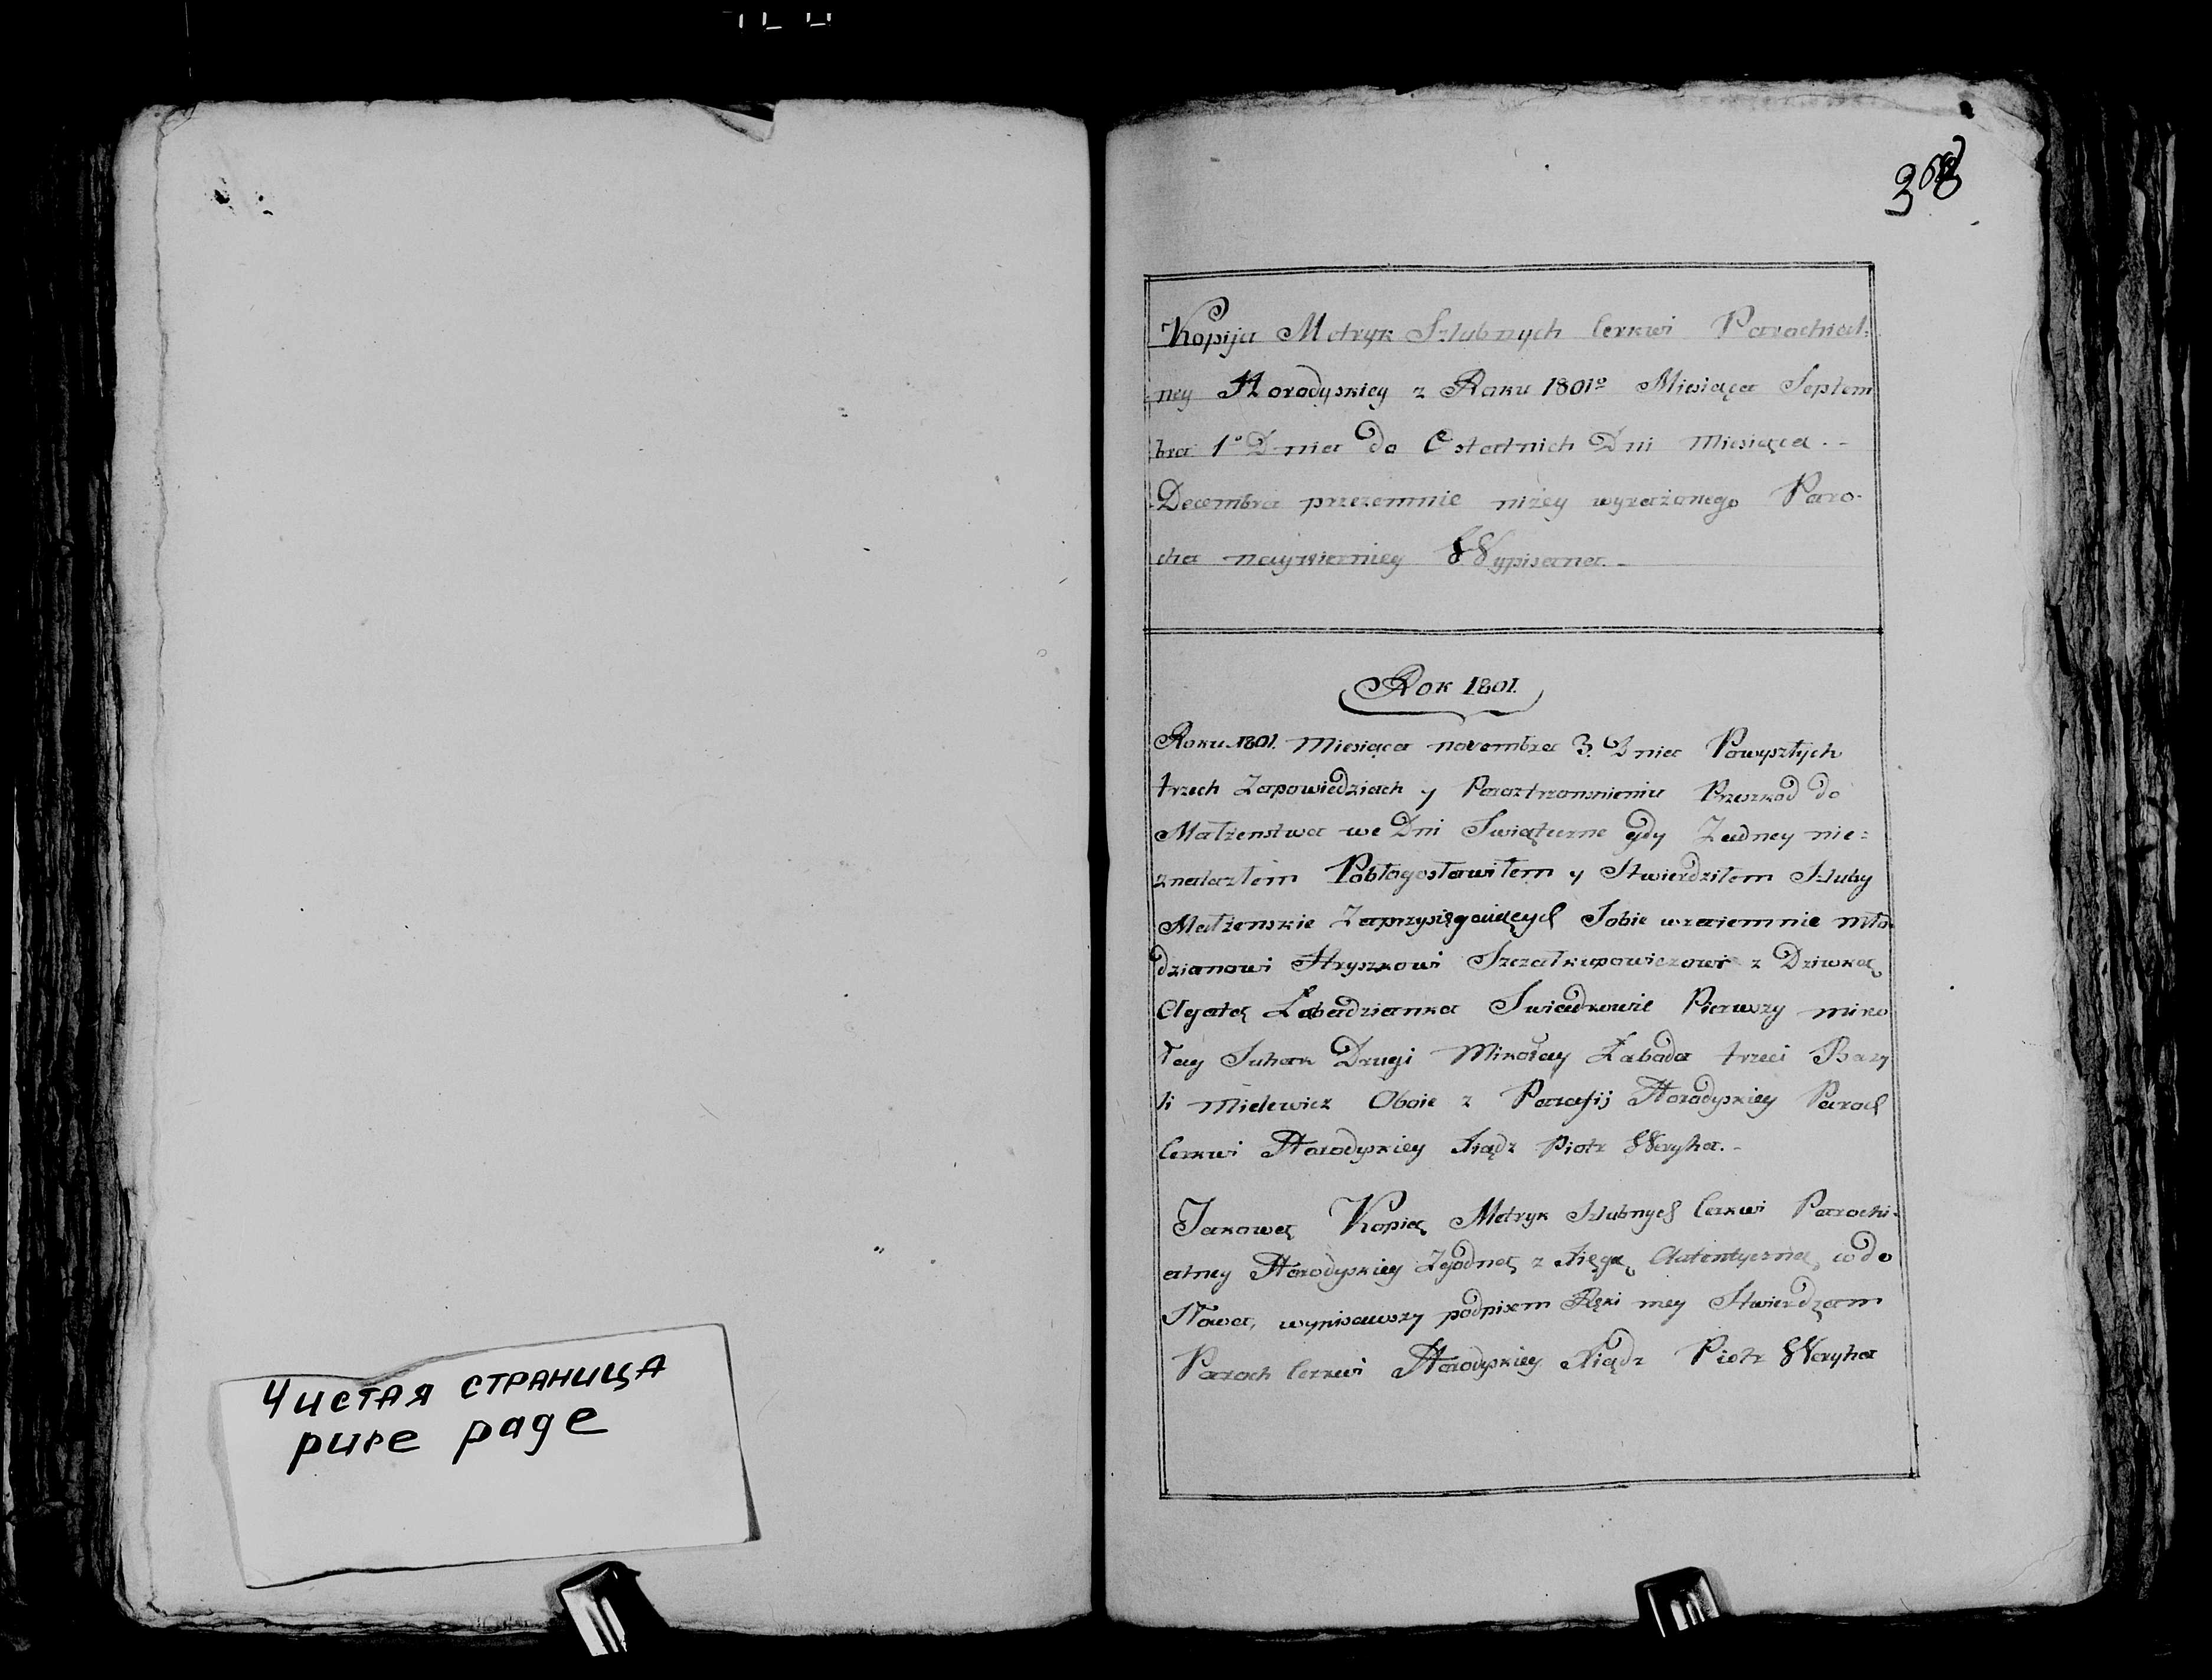 368
Kopija Metryk Szlubnych Cerkwi Parochial:
ney Horodyskiey z Roku 1801º Miesiąca Septem
bra 1º Dnia do Ostatnich Dni Miesiąca.-
Decembra przezemnie niżey wyrażonego Paro-
cha naywierniey Wypisana.-
Rok 1801.
Roku 1801. Miesiąca novembra 3. Dnia Powyszłych
trzech Zapowiedziach y Przeszkod do
Małżenstwa we Dni Swiąteczne gdy Żadney nie:
znalazłem Pobłogosławiłem y Stwierdziłem Szluby
Małżenskie Zaprzysięgaiących Sobie wzaiemnie mło
dzianowi Hryszkowi z Dziwką
Agatą Łabadzianka Swiadkowie Pierwszy miko
łay Suhak Drugi Mikołay Łabada trzeci Bazy
li Mielewicz Oboie z Parafij Horodyskiey Paroch
Cerkwi Horodyskiey Xiądz Piotr Waryha.-
Jakową Kopią Metryk Szlubnych Cerkwi Parochi-
alney Horodyskiey Zgodną z Xięgą Autentyczną, co do
Słowa, wypisawszy podpisem Ręki mey Stwierdzam
Paroch Cerkwi Horodyskiey Xiądz Piotr Waryha
Чистая страница
pure page